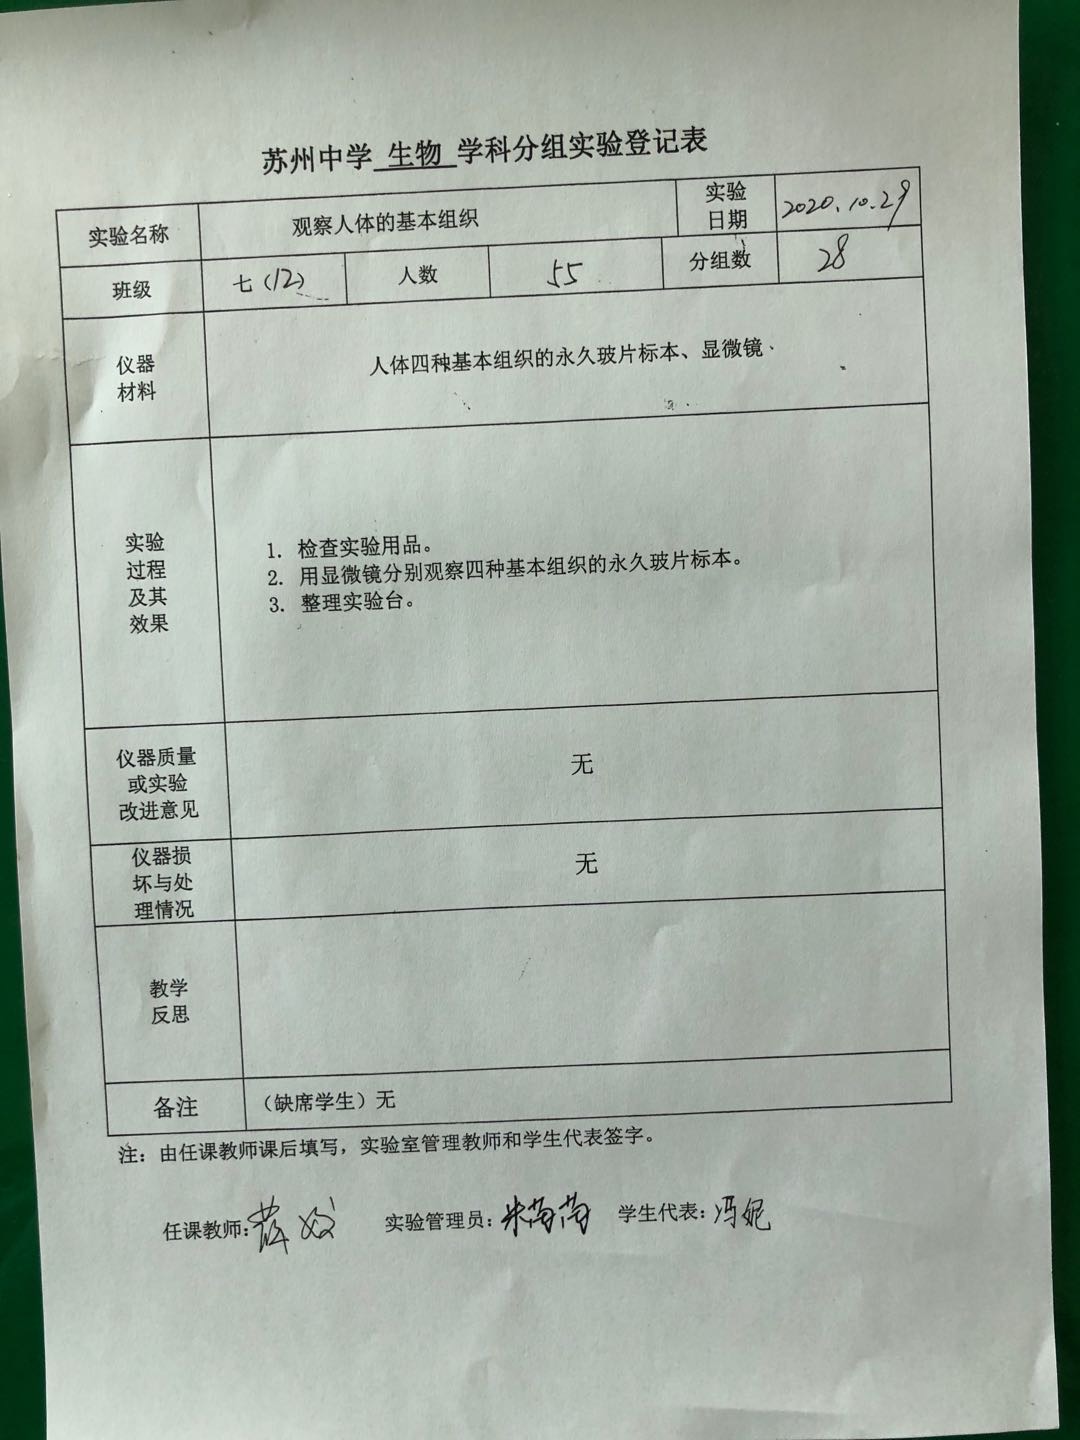 苏州中学 生物 学科分组实验登记表
实验名称 观察人体的基本组织 实验日期 2020.10.29
班级 七(12) 人数 55 分组数 28
仪器
材料
人体四种基本组织的永久玻片标本、显微镜
实验
过程
及其
效果
1. 检查实验用品。
2. 用显微镜分别观察四种基本组织的永久玻片标本。
3. 整理实验台。
仪器质量
或实验
改进意见
无
仪器损
坏与处
理情况
无
教学
反思
备注 (缺席学生)无
注:由任课教师课后填写,实验室管理教师和学生代表签字。
任课教师: 薛 实验管理员: 朱苗苗 学生代表: 冯妮